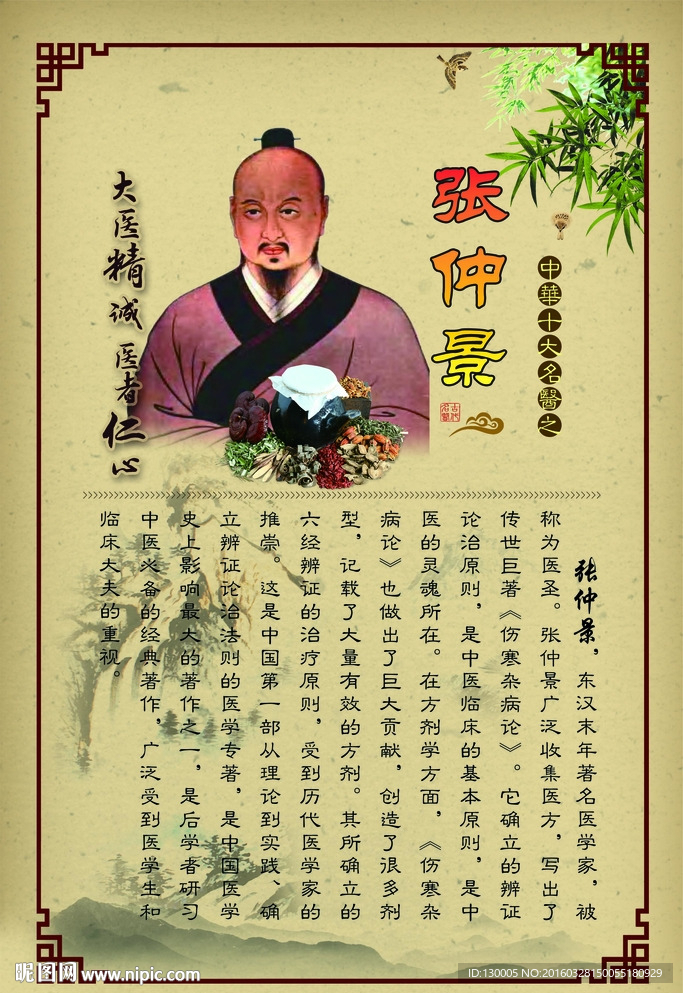 中華十大名醫之
张仲景
古代名醫
大医精诚 医者仁心
张仲景，东汉末年著名医学家，被
称为医圣。张仲景广泛收集医方，写出了
传世巨著《伤寒杂病论》。它确立的辨证
论治原则，是中医临床的基本原则，是中
医的灵魂所在。在方剂学方面，《伤寒杂
病论》也做出了巨大贡献，创造了很多剂
型，记载了大量有效的方剂。其所确立的
六经辨证的治疗原则，受到历代医学家的
推崇。这是中国第一部从理论到实践、确
立辨证论治法则的医学专著，是中国医学
史上影响最大的著作之一，是后学者研习
中医必备的经典著作，广泛受到医学生和
临床大夫的重视。
昵图网 www.nipic.com
ID:130005 NO:20160328150055180929